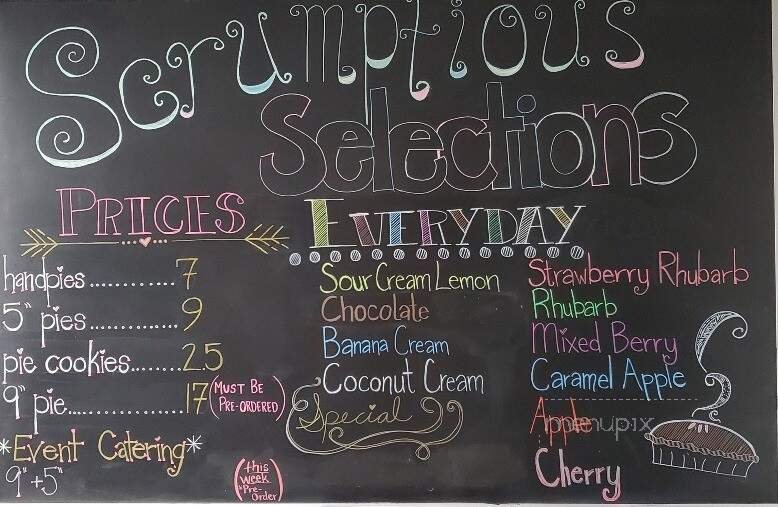 Scrumptious
Selections
PRICES
handpies............7
5" pies.............9
pie cookies.......2.5
9" pie...............17 (MUST BE
PRE-ORDERED)
*Event Catering*
9" + 5"
(this
week
*Pre-
Order)
EVERYDAY
Sour Cream Lemon
Chocolate
Banana Cream
Coconut Cream
Special
Strawberry Rhubarb
Rhubarb
Mixed Berry
Caramel Apple
Apple
Cherry
menupix